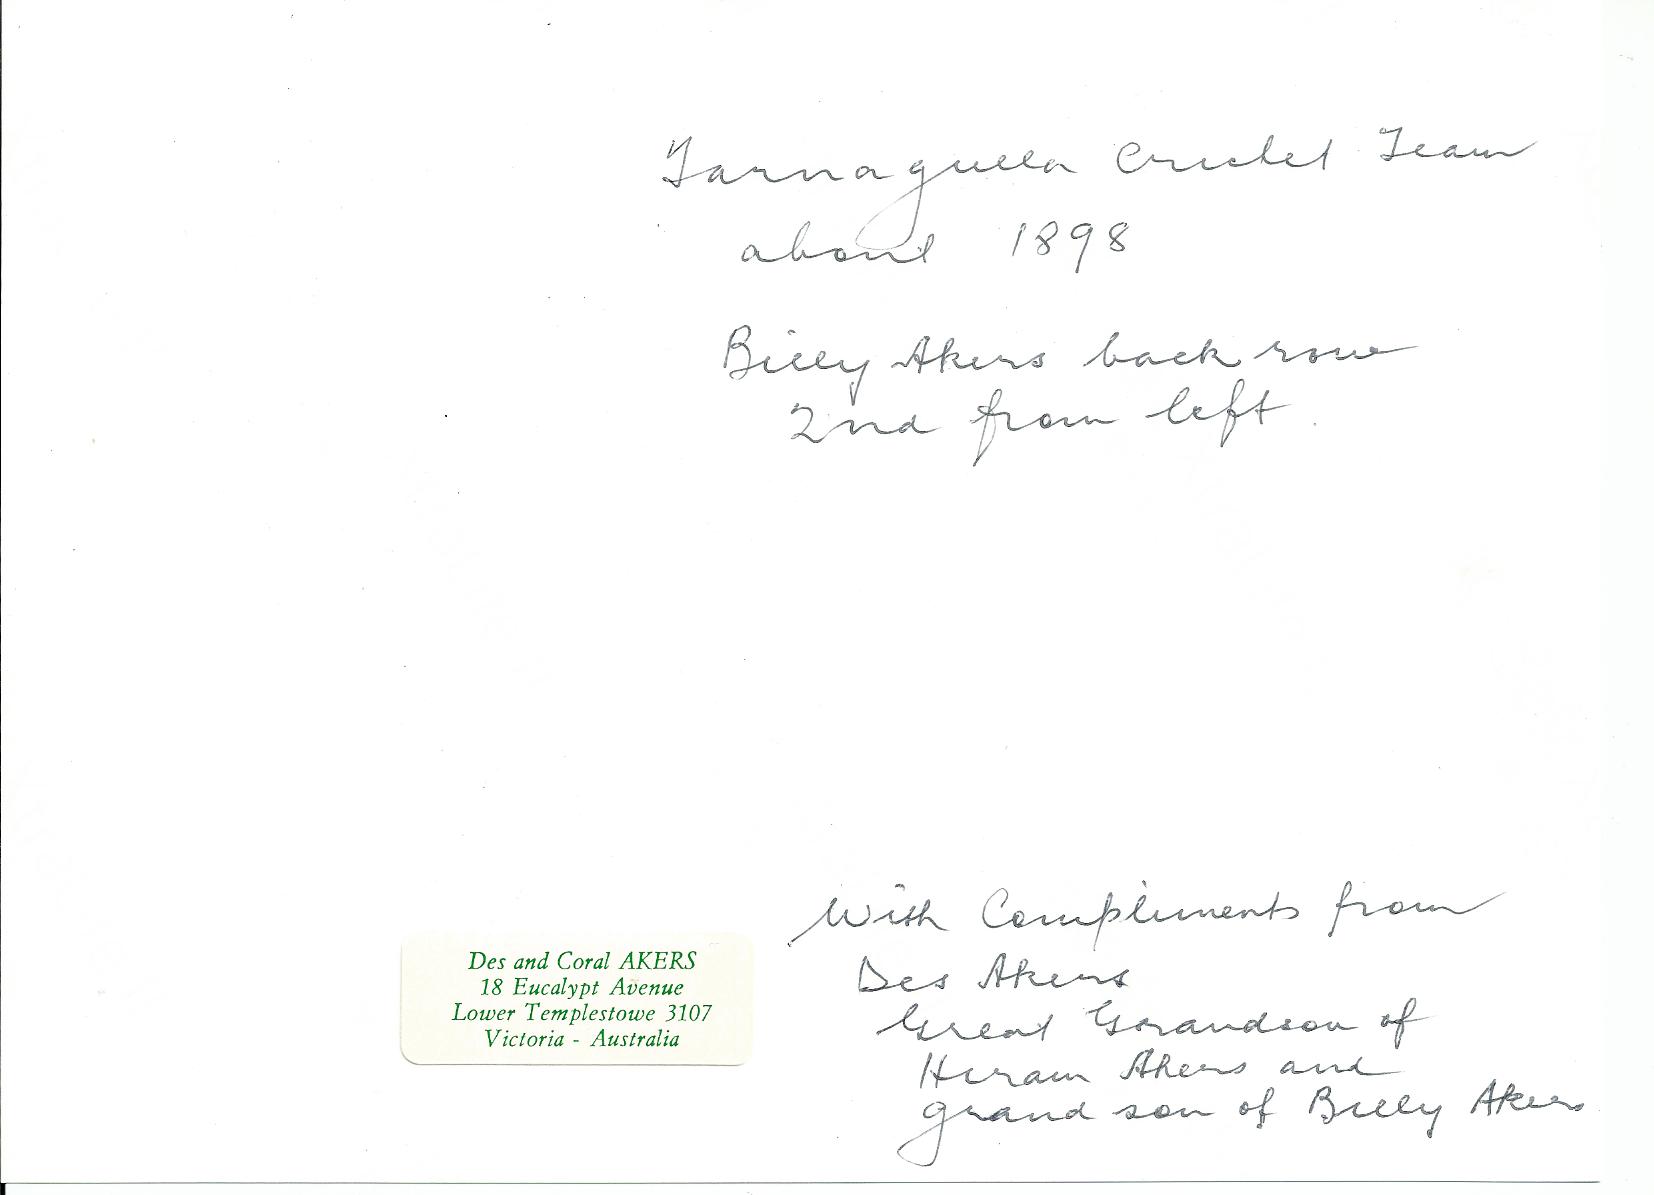 Tarnagulla Cricket Team
about 1898
Billy Akers back row
2nd from left.
With Compliments from
Des Akers
Great Grandson of
Hiram Akers and
grand son of Billy Akers
Des and Coral AKERS
18 Eucalypt Avenue
Lower Templestowe 3107
Victoria - Australia